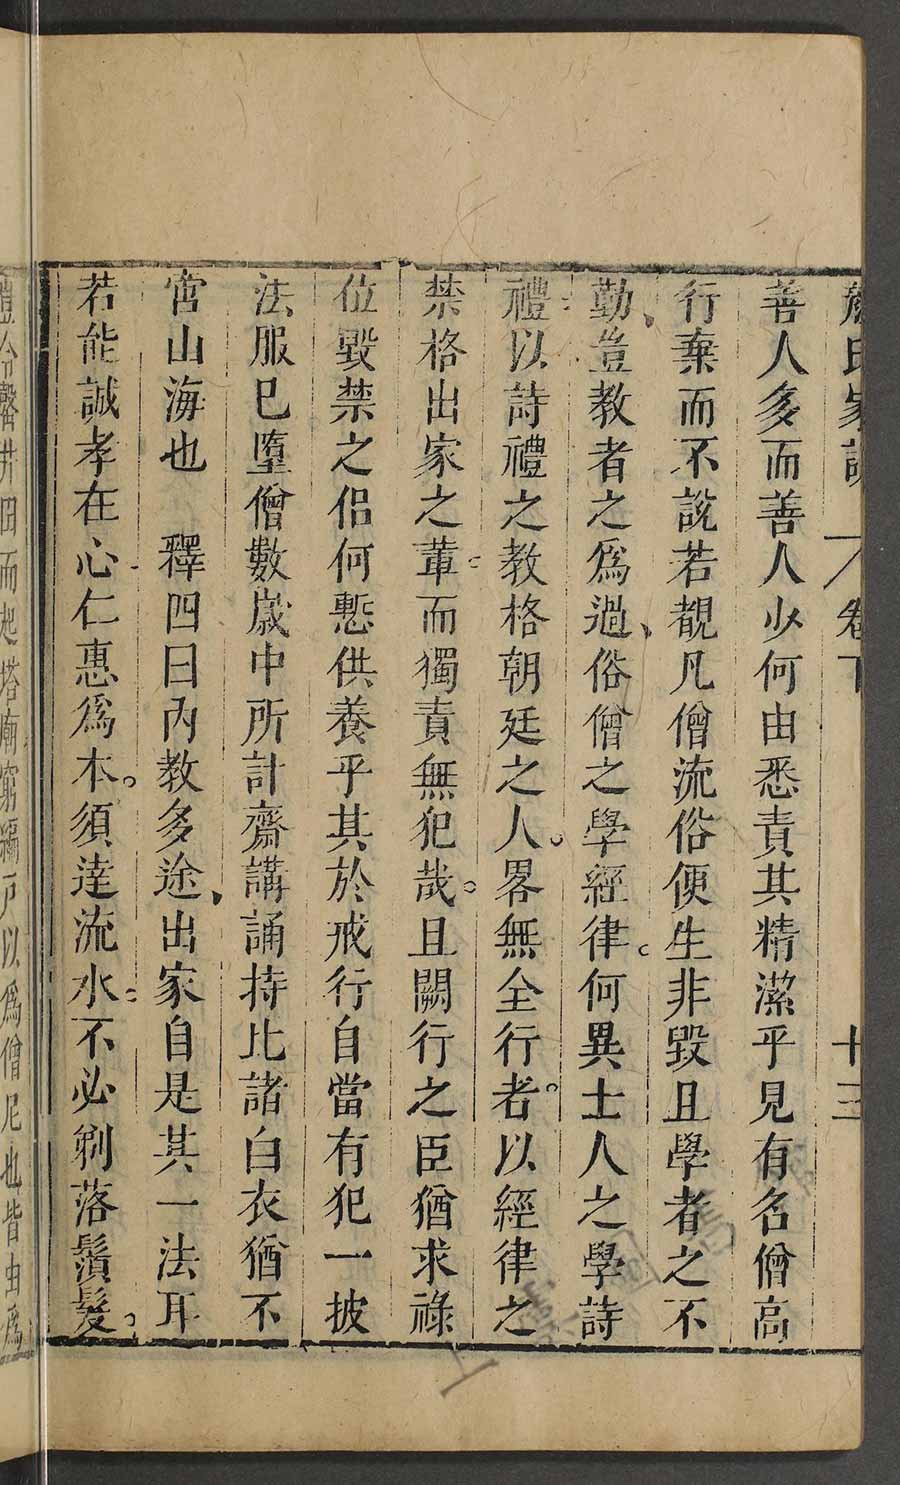 顏氏家訓 卷下 十三
善人多而善人少何由悉責其精潔乎見有名僧高
行棄而不說若覩凡僧流俗便生非毀且學者之不
勤豈教者之為過俗僧之學經律何異士人之學詩
禮以詩禮之教格朝廷之人畧無全行者以經律之
禁格出家之輩而獨責無犯哉且闕行之臣猶求祿
位毀禁之侶何慙供養乎其於戒行自當有犯一披
法服已墮僧數歲中所計齋講誦持比諸白衣猶不
啻山海也 釋四曰內教多途出家自是其一法耳
若能誠孝在心仁惠爲本須達流水不必剃落鬚髮
井田而起塔廟窮編戶以爲僧尼也皆由爲